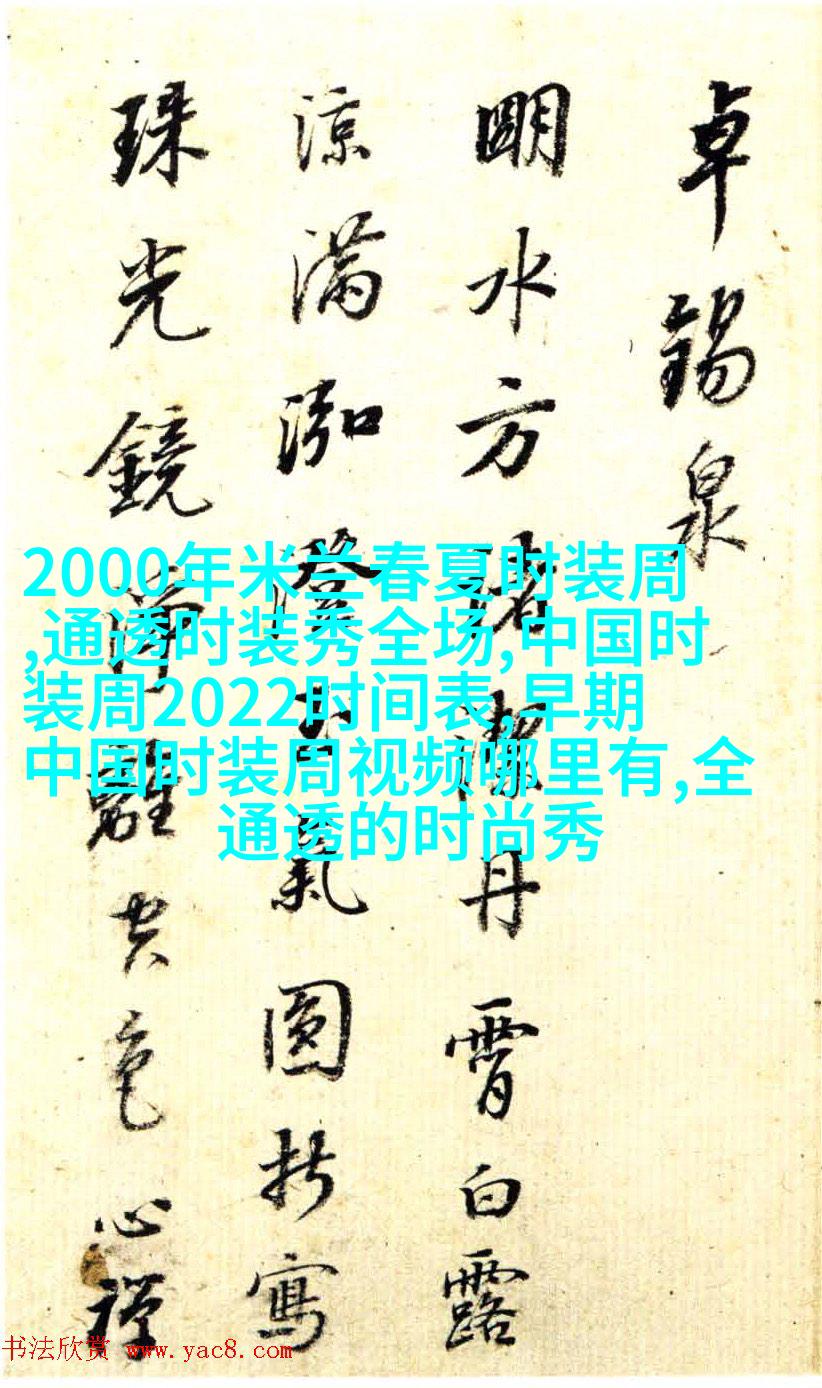 卓錫泉
朙水方潔丹霄白露
涼滿泓澄氣圓折寫
珠光鏡離空色心禪
2000年米兰春夏时装周
,通透时装秀全场,中国时
装周2022时间表,早期
中国时装周视频哪里有,全
通透的时尚秀
书法欣赏 www.yac8.com